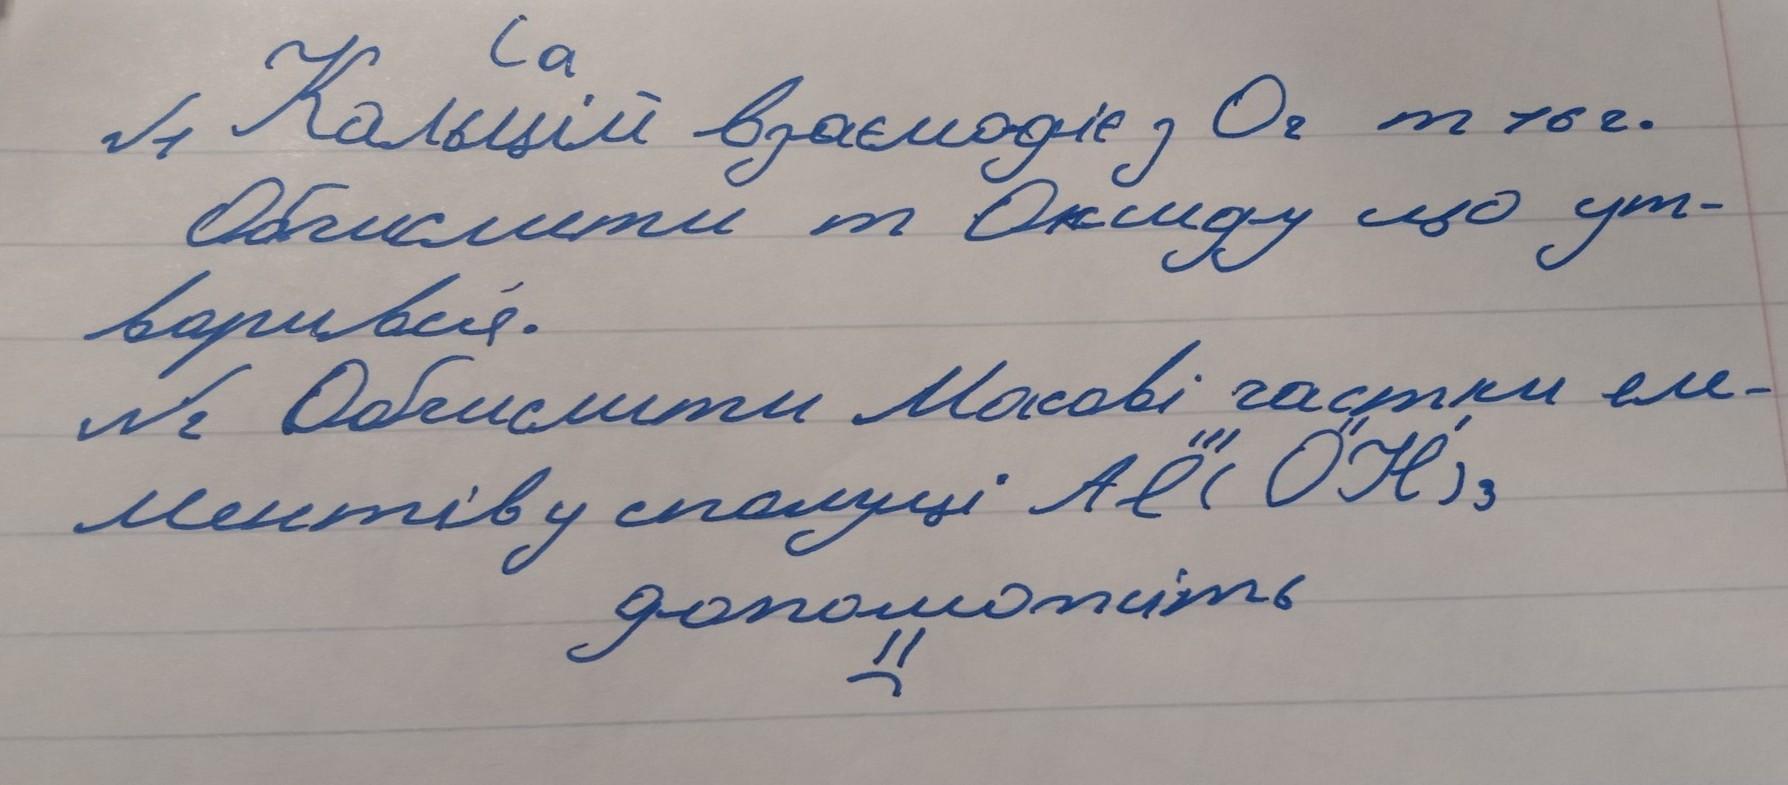 Ca
№1 Кальцій взаємодіє з O2 m 16 г.
Обчислити m Оксиду що ут-
ворився.
№2 Обчислити Масові частки еле-
ментів у сполуці Al'''(O''H')3
допоможіть